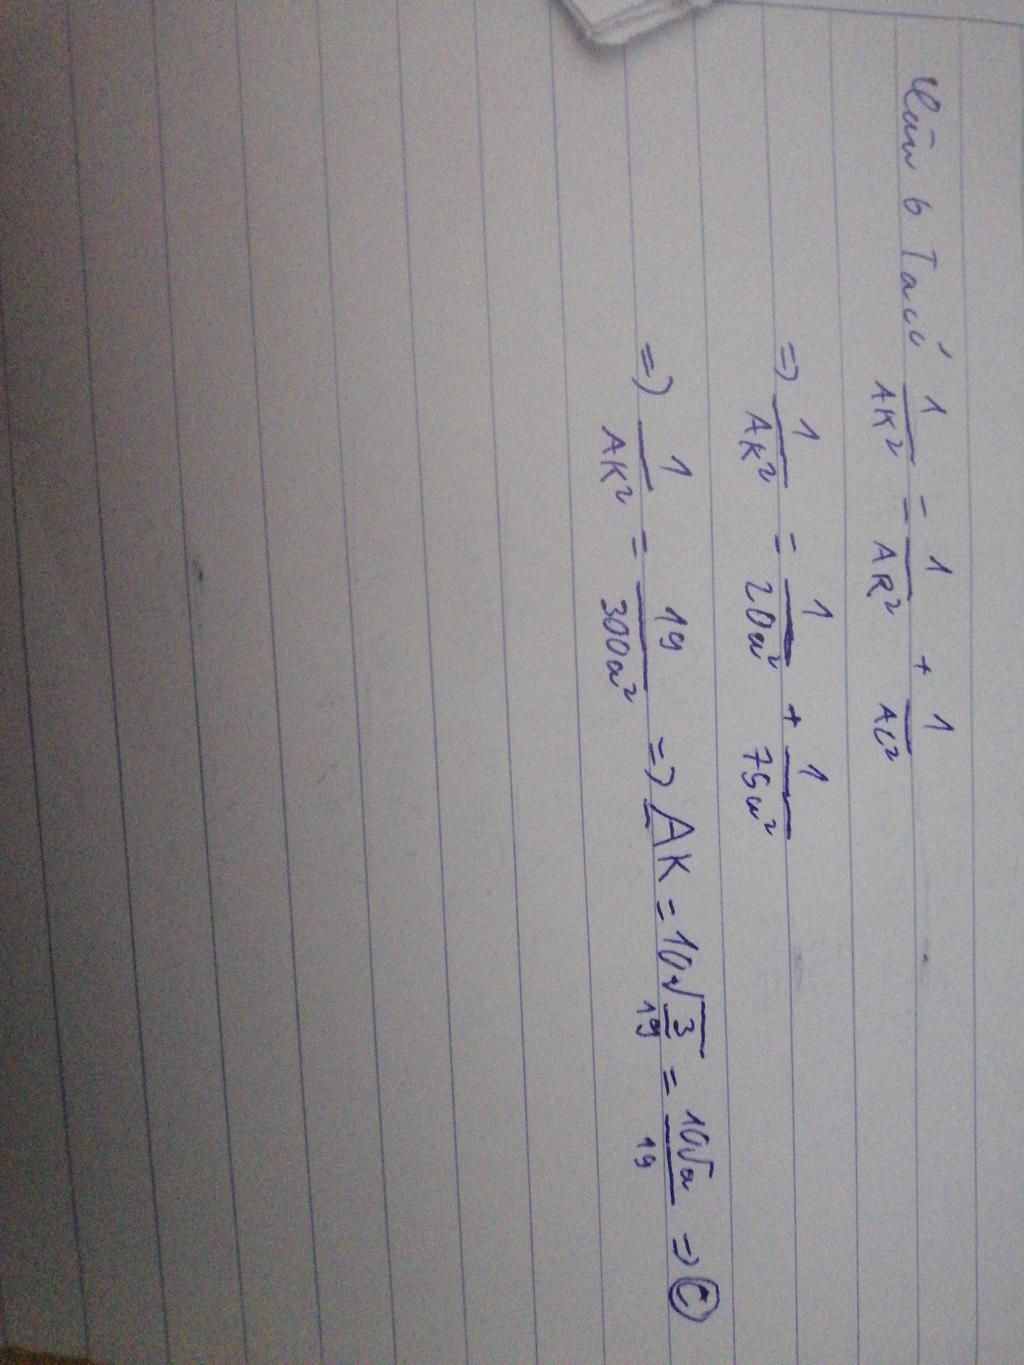 1/AK² = 1/AR² + 1/AC²
=) 1/AK² = 1/20a² + 1/75a²
=) 1/AK² = 19/300a² =) AK = 10√3/19 = 10√a/19 =) C